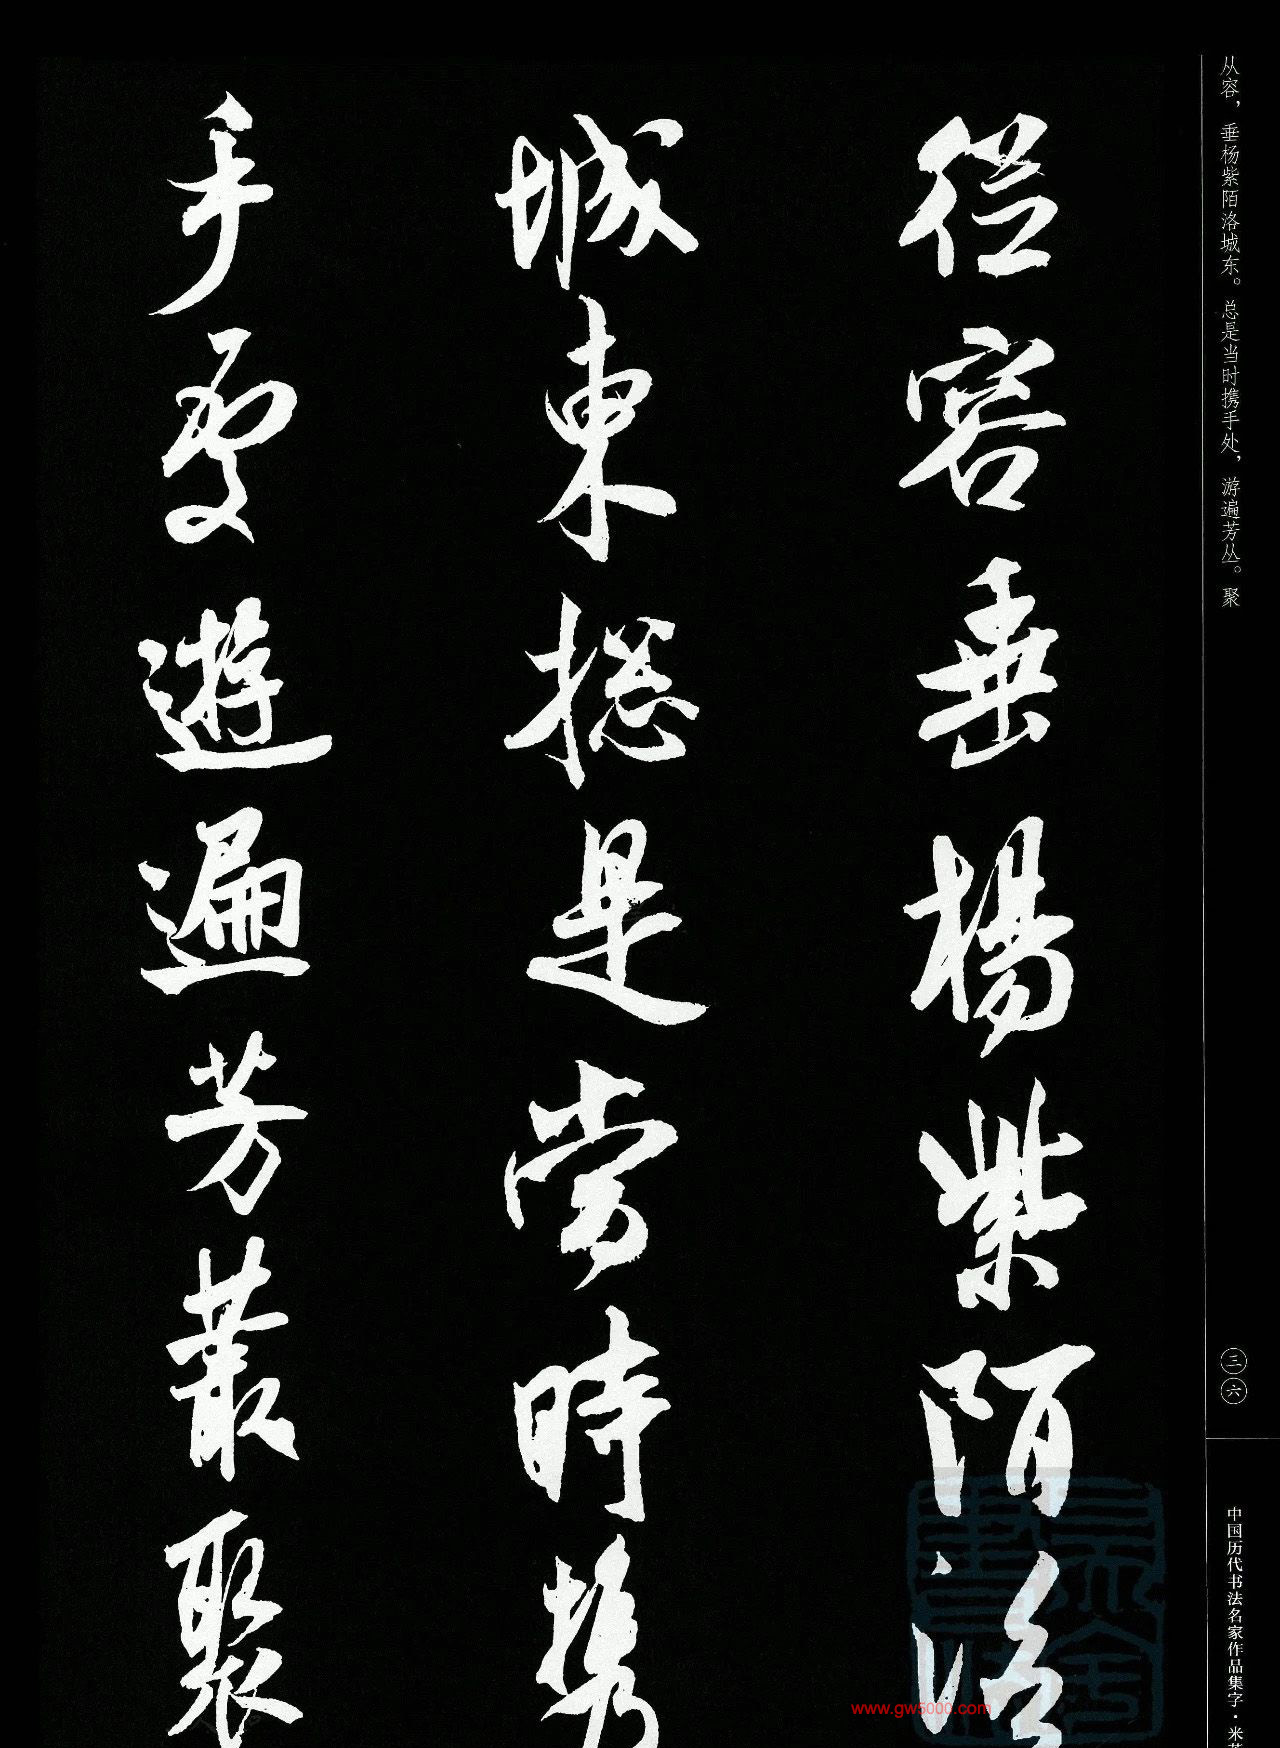 从容，垂杨紫陌洛城东。总是当时携手处，游遍芳丛。聚
三六
中国历代书法名家作品集字·米
從容垂楊紫陌洛
城東揔是當時携
手處遊遍芳叢聚
www.gw5000.com